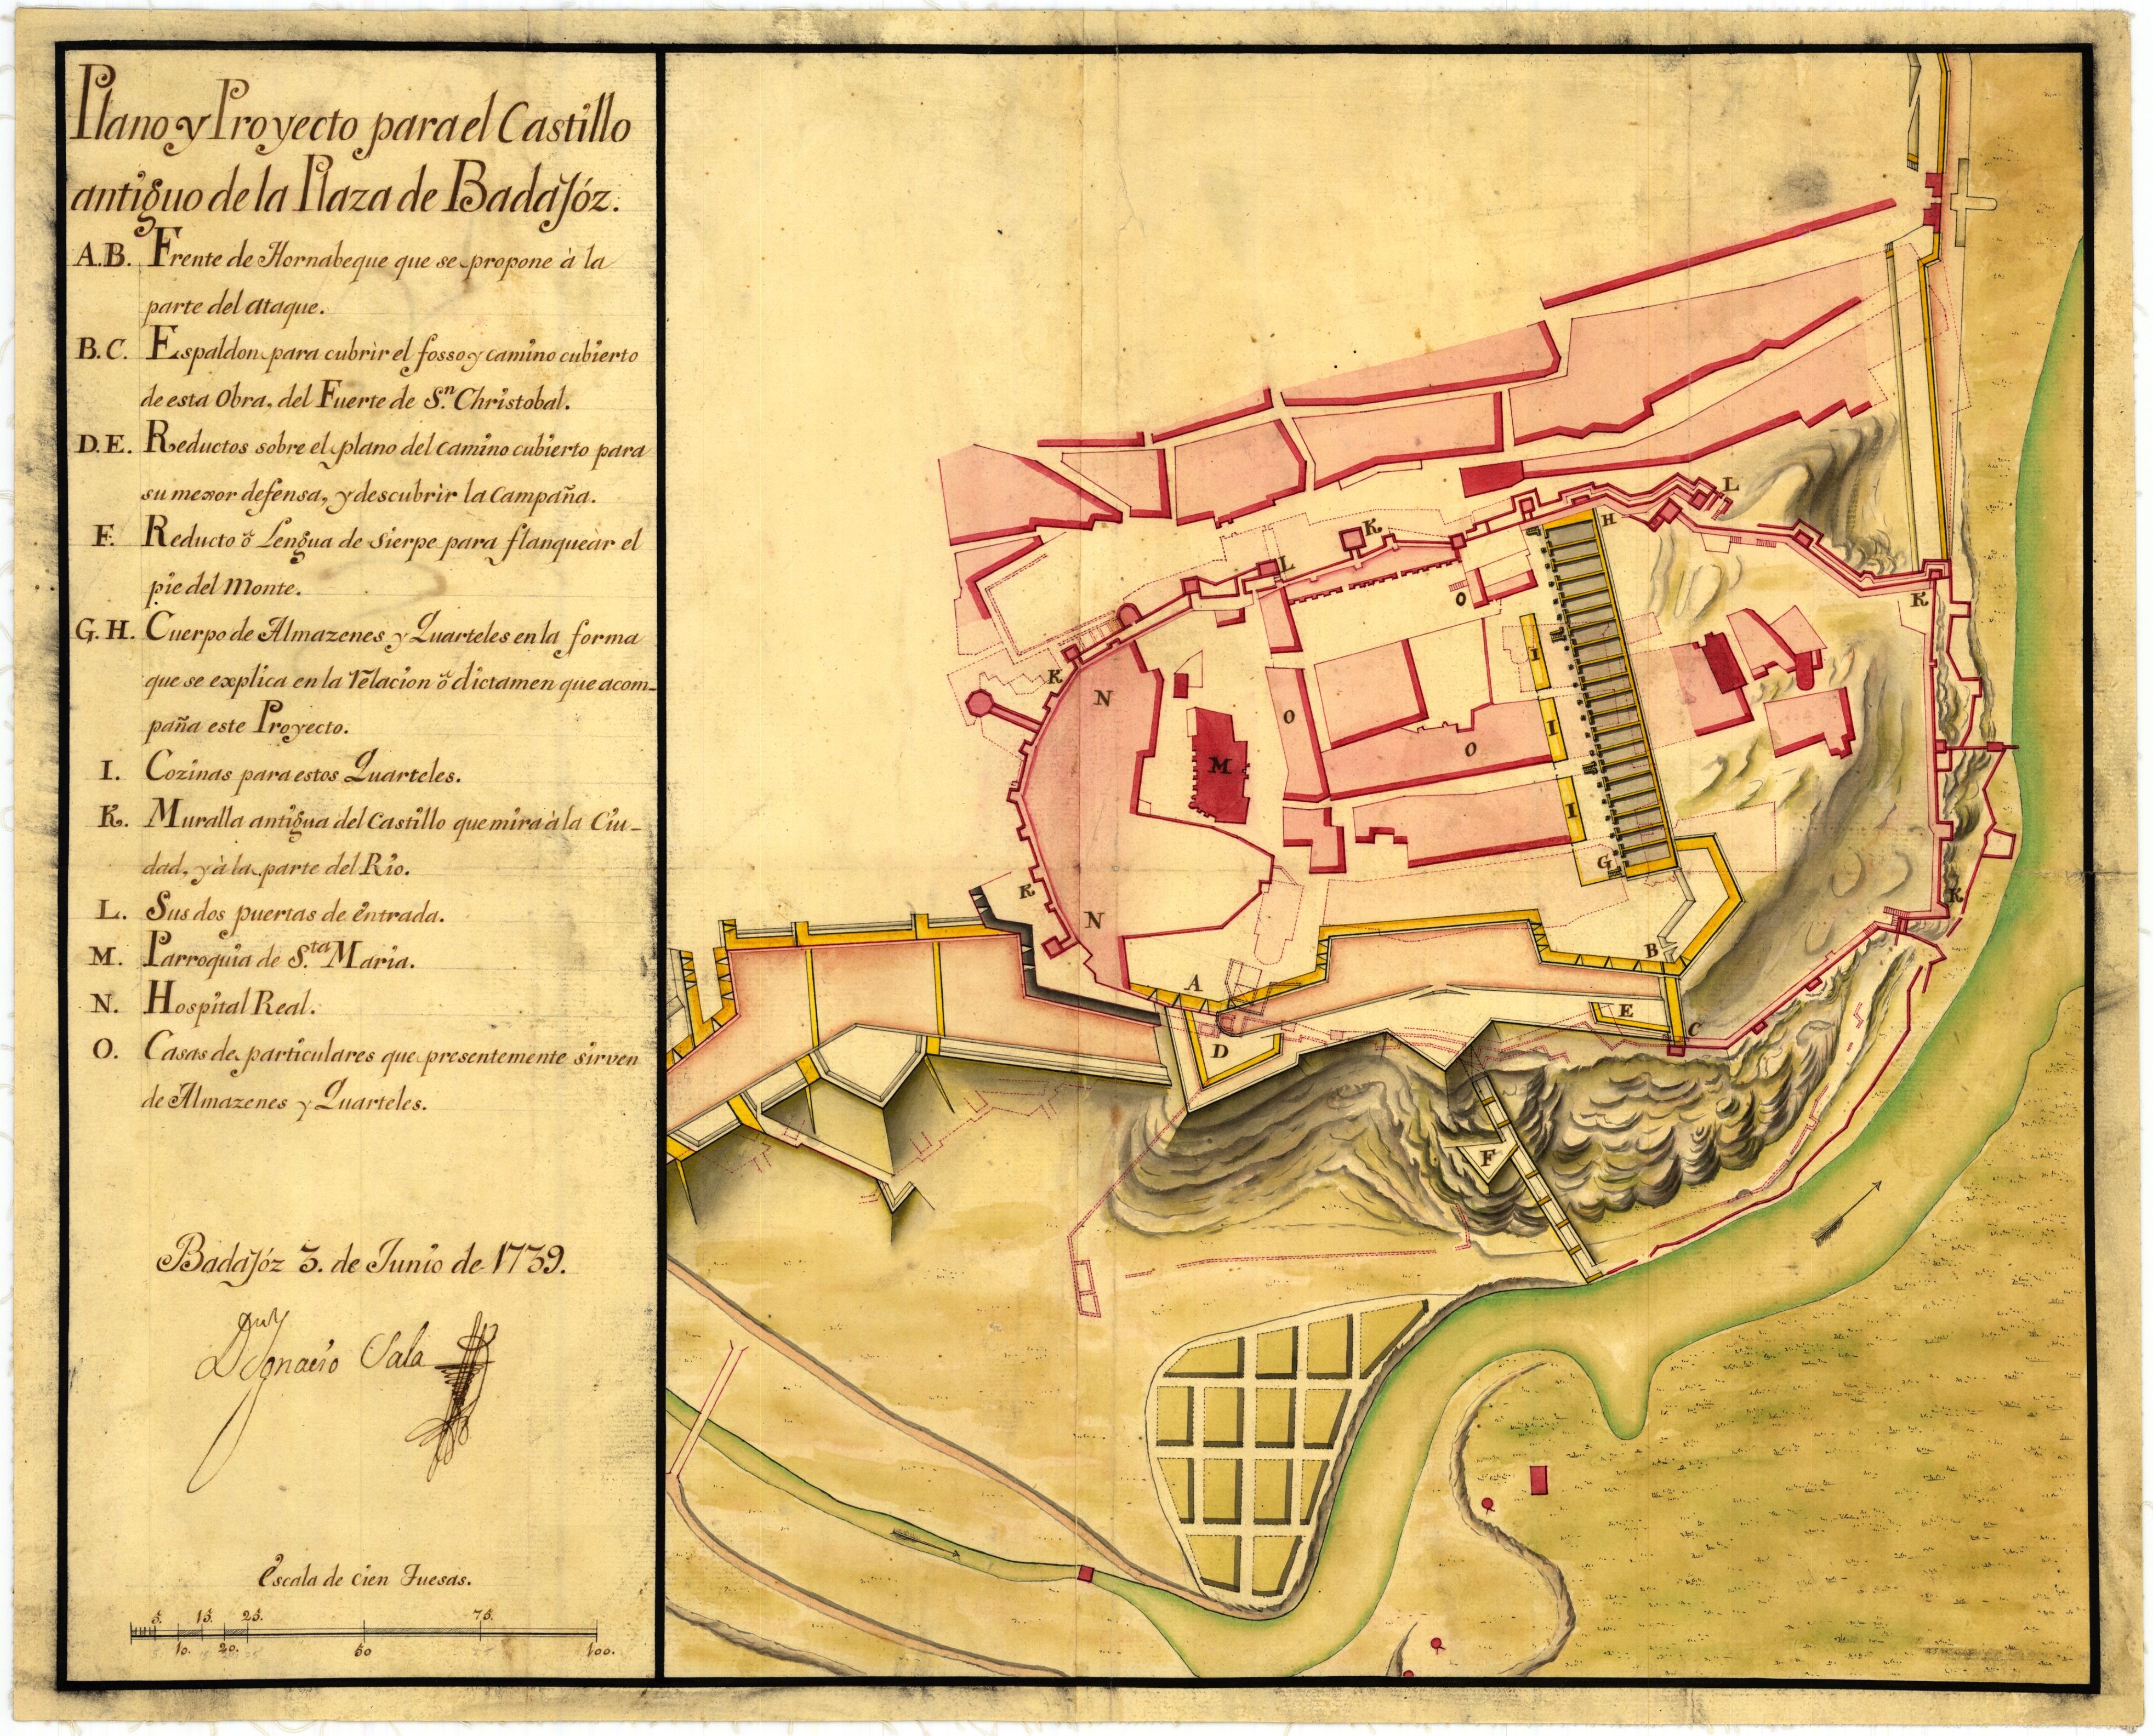 Plano y Proyecto para el Castillo
antiguo de la Plaza de Badajóz.
A.B. Frente de Hornabeque que se propone à la
parte del ataque.
B.C. Espaldon para cubrir el fosso y camino cubierto
de esta Obra, del Fuerte de Sn. Christobal.
D.E. Reductos sobre el plano del camino cubierto para
su mexor defensa, y descubrir la Campaña.
F. Reducto ô Lengua de Sierpe para flanquear el
pie del Monte.
G.H. Cuerpo de Almazenes y Quarteles en la forma
que se explica en la relacion ô dictamen que acom-
paña este Proyecto.
I. Cozinas para estos Quarteles.
K. Muralla antigua del Castillo que mira à la Ciu-
dad, y à la parte del Rio.
L. Sus dos puertas de entrada.
M. Parroquia de Sta. Maria.
N. Hospital Real.
O. Casas de particulares que presentemente sirven
de Almazenes y Quarteles.
Badajóz 3. de Junio de 1739.
Dn Ignacio Sala
Escala de cien Tuesas.
5. 15. 25. 75.
10. 20. 50 100.
L
K
H
L
O
K
K
N
I
O
I
O
M
I
G
K
K
N
B
A
E
C
D
F